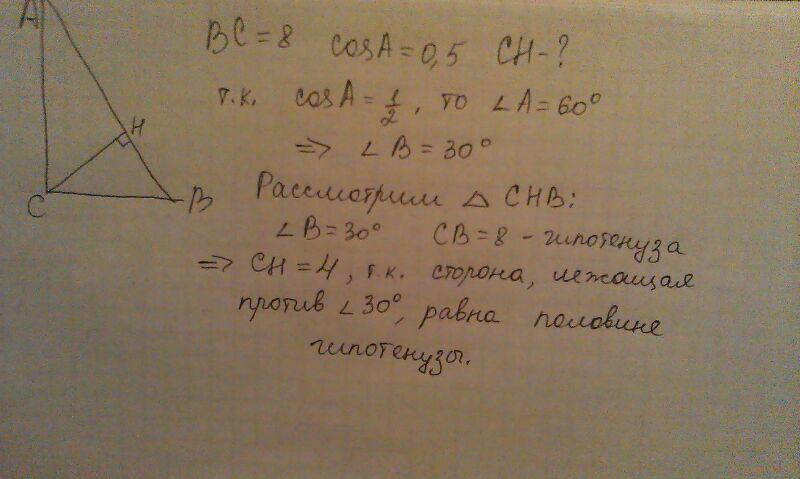 A
H
C
B
BC = 8 cosA = 0,5 CH - ?
т.к. cosA = 1/2, то ∠A = 60°
=> ∠B = 30°
Рассмотрим △ CHB:
∠B = 30° CB = 8 - гипотенуза
=> CH = 4, т.к. сторона, лежащая
против ∠30°, равна половине
гипотенузы.